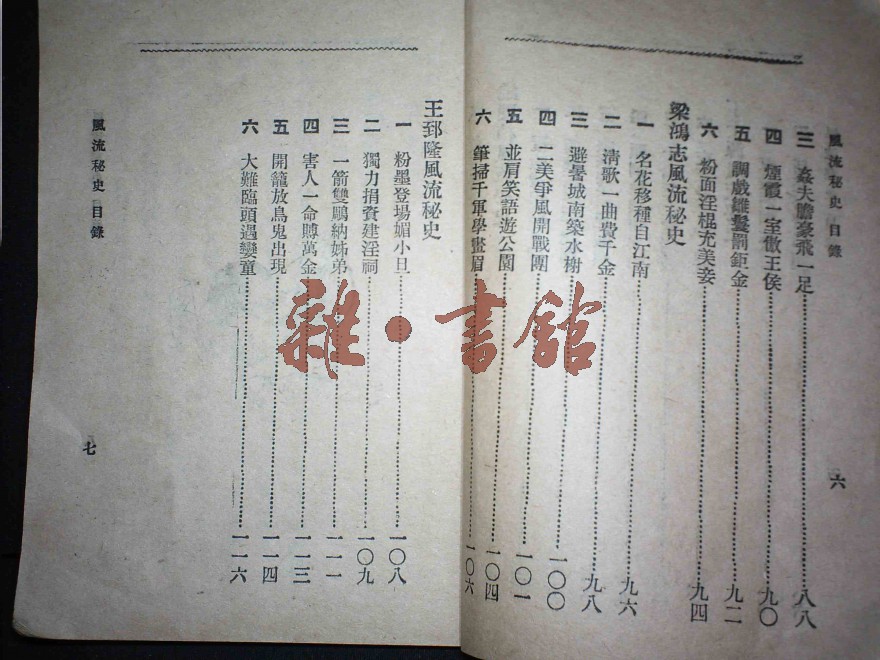 風流秘史 目錄
三 姦夫膽豪飛一足……八八
四 煙霞一室傲王侯……九〇
五 調戲雛鬟罰鉅金……九二
六 粉面淫棍充美妾……九四
梁鴻志風流秘史
一 名花移種自江南……九六
二 清歌一曲費千金
三 避暑城南築水榭……九八
四 二美爭風開戰團……一〇〇
五 並肩笑語遊公園……一〇一
六 筆掃千軍學畫眉……一〇四
一〇六
六
王郅隆風流秘史
一 粉墨登場媚小旦……一〇八
二 獨力捐資建淫祠……一〇九
三 一箭雙鵰納姊弟……一一一
四 害人一命賻萬金……一一三
五 開籠放鳥鬼出現……一一四
六 大難臨頭遇孌童……一一六
風流秘史 目錄
七
雜·書館